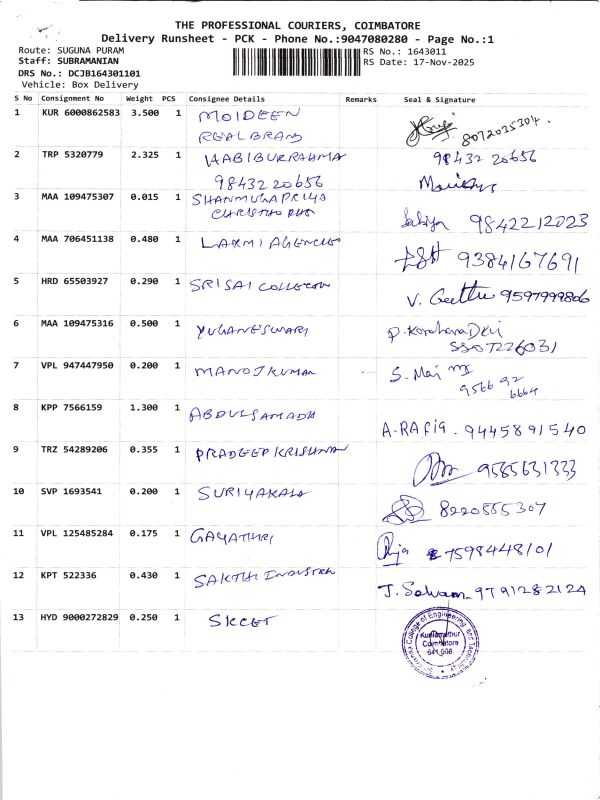 THE PROFESSIONAL COURIERS, COIMBATORE
Delivery Runsheet - PCK - Phone No.:9047080280 - Page No.:1
Route: SUGUNA PURAM RS No.: 1643011
Staff: SUBRAMANIAN RS Date: 17-Nov-2025
DRS No.: DCJB164301101
Vehicle: Box Delivery
S No Consignment No Weight PCS Consignee Details Remarks Seal & Signature
1 KUR 6000862583 3.500 1 MOIDEEN
REALBRAND 8072035304.
2 TRP 5320779 2.325 1 HABIBURRAHMA 98432 20656
98432 20656
3 MAA 109475307 0.015 1 SHANMUGAPRIYA
9842212023
4 MAA 706451138 0.480 1 LAXMI AGENCIES 9384167691
5 HRD 65503927 0.290 1 SRISAI COLLECTION V. Geetha 9597999806
6 MAA 109475316 0.500 1 YUGANESWARI
7 VPL 947447950 0.200 1 MANOJKUMAR S. Mai
95669 92
6664
8 KPP 7566159 1.300 1 ABDULSAMADH A-RAFIQ - 9445891540
9 TRZ 54289206 0.355 1 PRADEEP KRISHNA 9585631333
10 SVP 1693541 0.200 1 SURIYAKALA 8220555307
11 VPL 125485284 0.175 1 GAYATHRI 7598448101
12 KPT 522336 0.430 1 SAKTHI INDUSTRI J. Selvam - 9791282124
13 HYD 9000272829 0.250 1 SKCET
College of Engineering and Technology
Kuniamuthur
Coimbatore
641 008